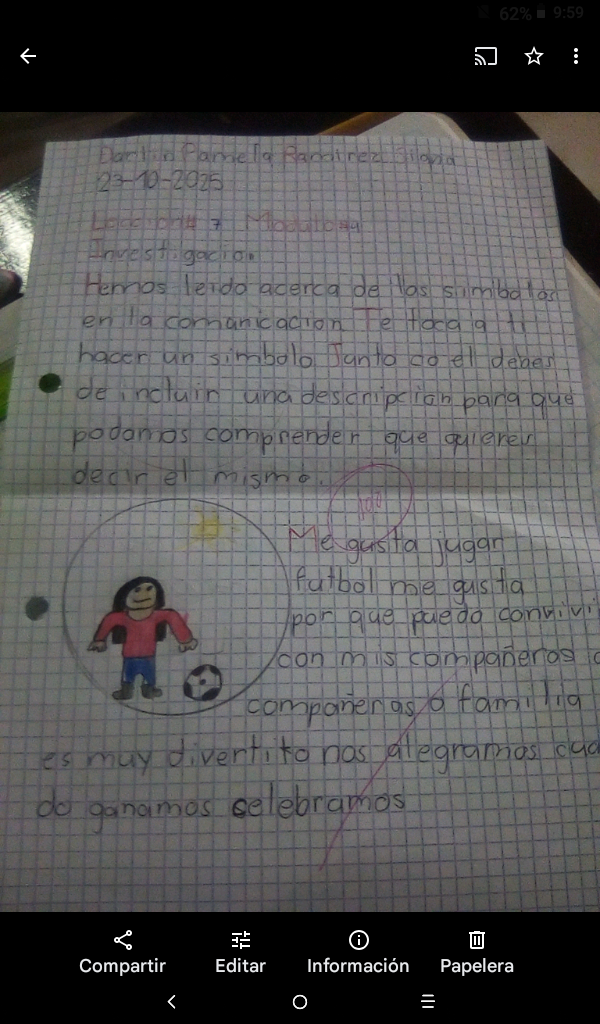 62% 9:59
Darlin Pamela Ramirez Tilapia
23-10-2025
Leccion# 7 Modulo#4
Investigacion
Hemos leido acerca de los simbolos
en la comunicacion Te toca a ti
hacer un simbolo Junto co el debes
de incluir una descripcion para que
podamos comprender que quieren
decir el mismo.
100
Me gusta jugar
futbol me gusta
por que puedo convivi
con mis compañeros o
compañeras o familia
es muy divertito nos alegramos cua
do ganamos celebramos
Compartir Editar Información Papelera